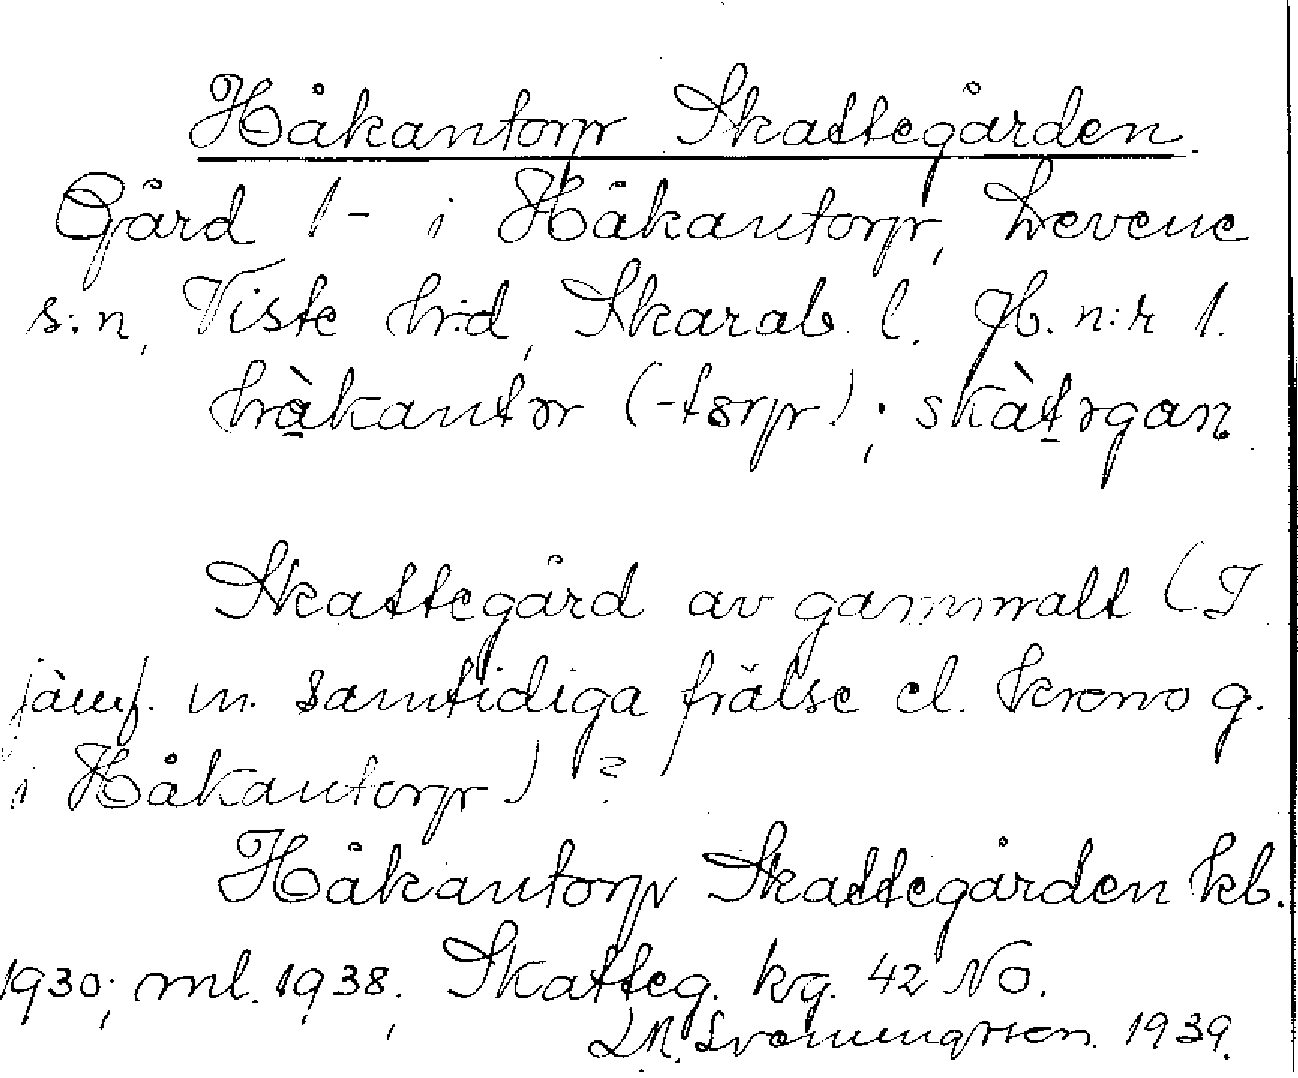 Håkantorp Skattegården.
Gård 1 - i Håkantorp, Levene
s:n, Viste hrd, Skarab. l. Jb. n:r 1.
hràkantor (-torp); skàtəgan
Skattegård av gammalt (I
jämf. m. samtidiga frälse el. krono g.
i Håkantorp) ?
Håkantorp Skattegården kb.
1930; ml. 1938, Skatteg. kg. 42 NO.
1939.